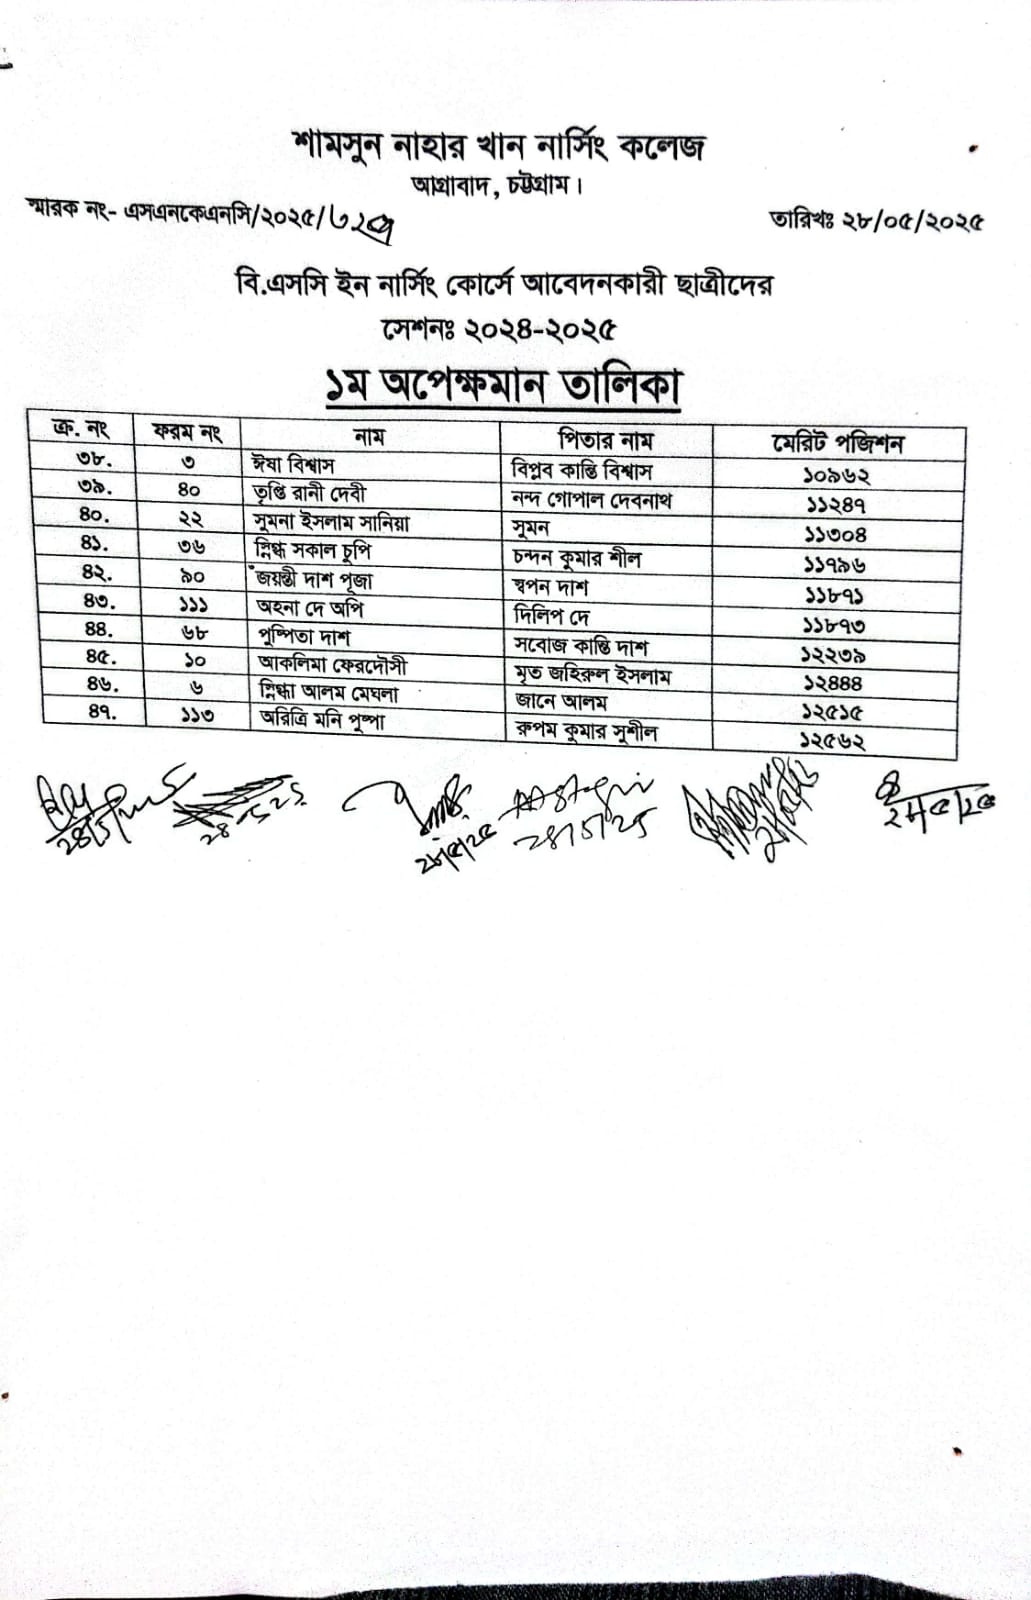 শামসুন নাহার খান নার্সিং কলেজ
আগ্রাবাদ, চট্টগ্রাম।
স্মারক নং- এসএনকেএনসি/২০২৫/ তারিখঃ ২৮/০৫/২০২৫
বি.এসসি ইন নার্সিং কোর্সে আবেদনকারী ছাত্রীদের
সেশনঃ ২০২৪-২০২৫
১ম অপেক্ষমান তালিকা
ক্র. নং ফরম নং নাম পিতার নাম মেরিট পজিশন
৩৮. ৩ ঈষা বিশ্বাস বিপ্লব কান্তি বিশ্বাস ১০৯৬২
৩৯. ৪০ তৃপ্তি রানী দেবী নন্দ গোপাল দেবনাথ ১১২৪৭
৪০. ২২ সুমনা ইসলাম সানিয়া সুমন ১১৩০৪
৪১. ৩৬ স্নিগ্ধ সকাল চুপি চন্দন কুমার শীল ১১৭৯৬
৪২. ৯০ জয়ন্তী দাশ পূজা স্বপন দাশ ১১৮৭১
৪৩. ১১১ অহনা দে অপি দিলিপ দে ১১৮৭৩
৪৪. ৬৮ পুষ্পিতা দাশ সবোজ কান্তি দাশ ১২২৩৯
৪৫. ১০ আকলিমা ফেরদৌসী মৃত জহিরুল ইসলাম ১২৪৪৪
৪৬. ৬ স্নিগ্ধা আলম মেঘলা জানে আলম ১২৫১৫
৪৭. ১১৩ অরিত্রি মনি পুষ্পা রুপম কুমার সুশীল ১২৫৬২
28/5/25 28/5/25